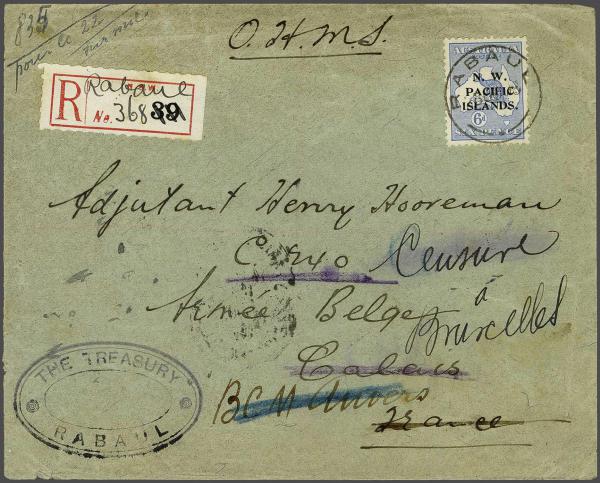 835
pour le 22
O.H.M.S.
R
Rabaul
No. 368
AUSTRALIA
N. W.
PACIFIC
ISLANDS.
6d
SIX PENCE
RABAUL
Adjutant Henry Hooreman
Censure
à
Bruxelles
Armée Belge
Calais
BCM Anvers
France
THE TREASURY
RABAUL